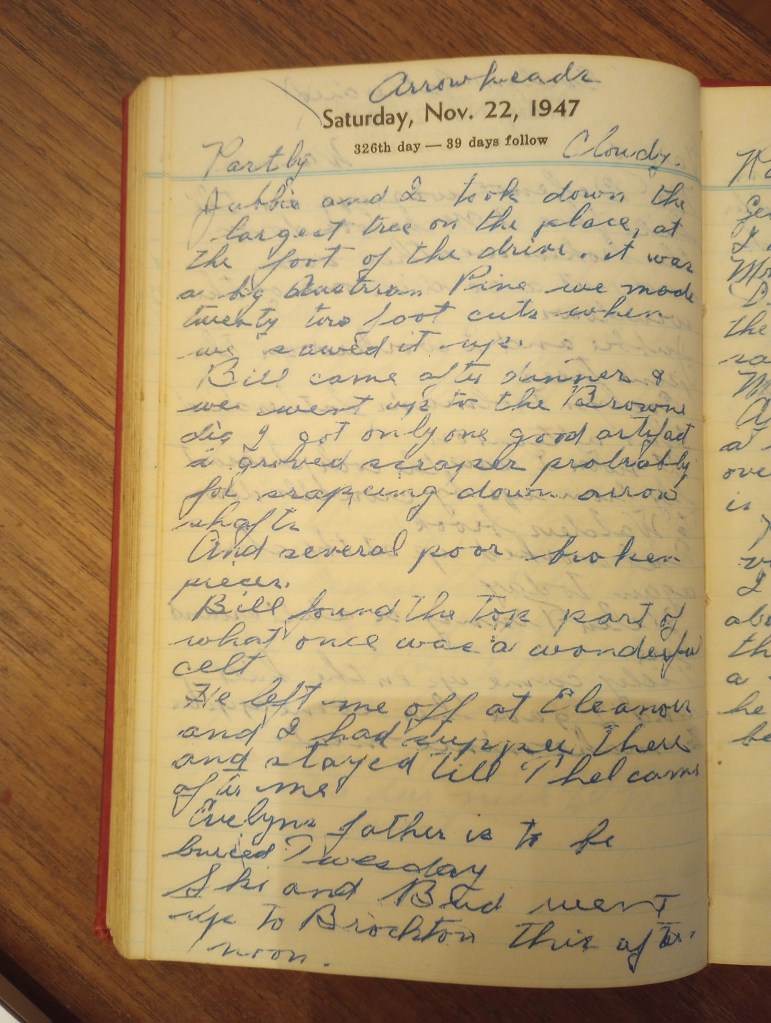 Arrowheads
Saturday, Nov. 22, 1947
326th day — 39 days follow
Partly Cloudy.
Jubbie and I took down the
largest tree on the place, at
the foot of the drive. it was
a big Austrian Pine we made
twenty two foot cuts when
we sawed it up.
Bill came after dinner &
we went up to the Browne
dig I got only one good artifact
a groved scraper probably
for scrapeing down arrow
shafts
And several poor broken
pieces.
Bill found the top part of
what once was a wonderful
celt
He left me off at Eleanors
and I had supper there
and stayed till Thel came
after me
Evelyns father is to be
buried Tuesday
Ski and Bud went
up to Brockton this after-
noon.
the
a
over
is
I
the
a
he
be